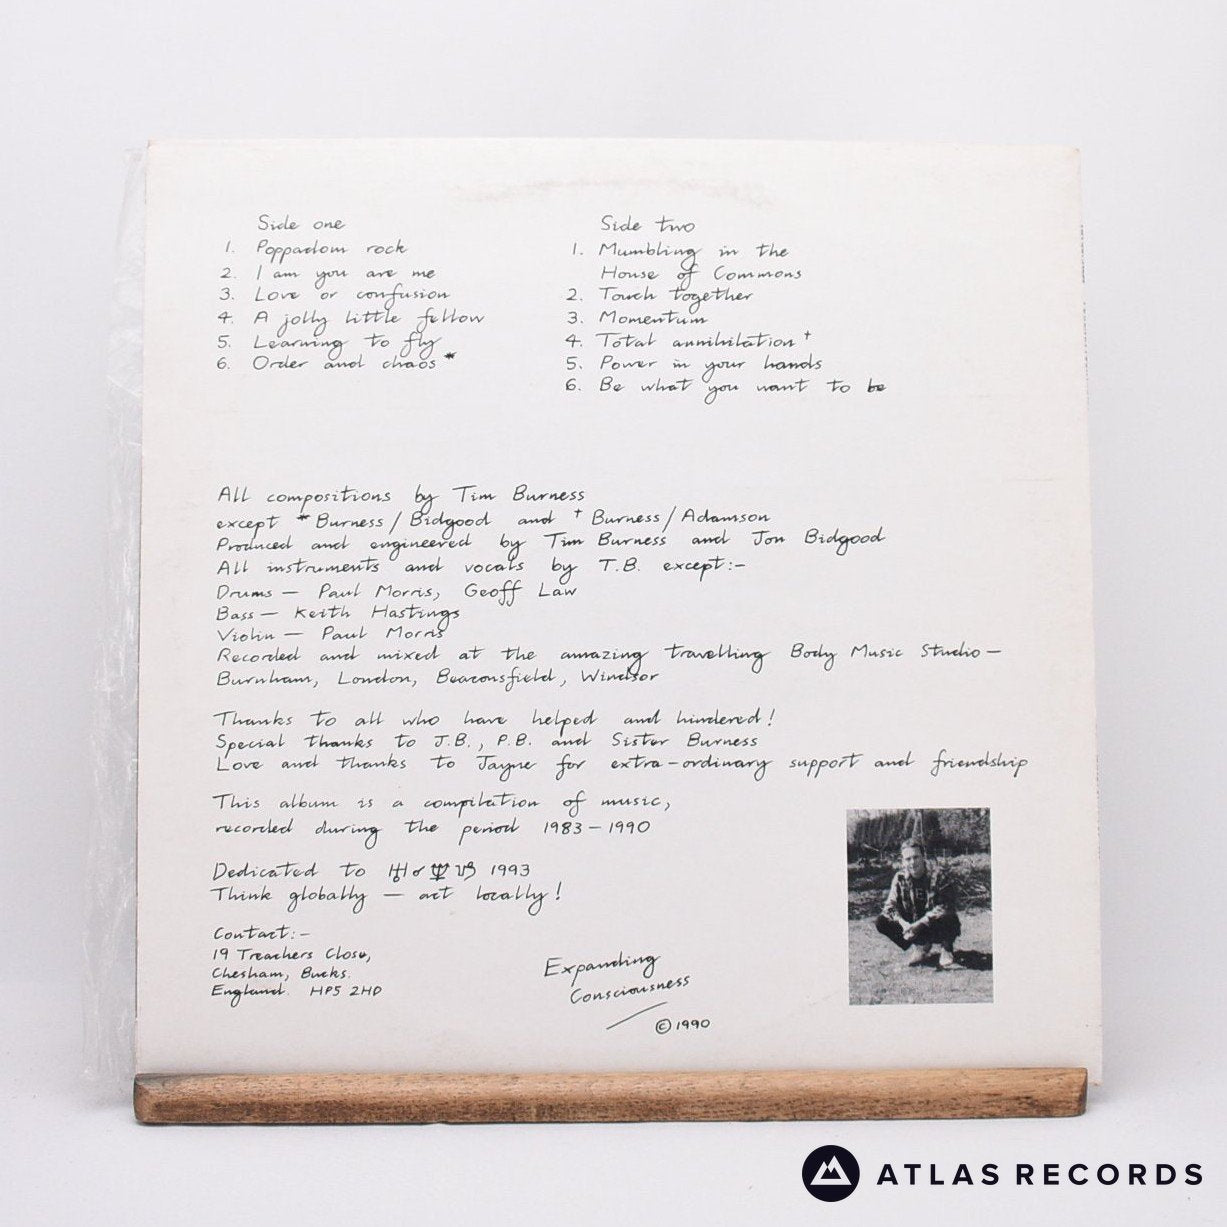 Side one
1. Poppadom rock
2. I am you are me
3. Love or confusion
4. A jolly little fellow
5. Learning to fly
6. Order and chaos *
Side two
1. Mumbling in the
House of Commons
2. Touch together
3. Momentum
4. Total annihilation †
5. Power in your hands
6. Be what you want to be
All compositions by Tim Burness
except * Burness / Bidgood and † Burness / Adamson
Produced and engineered by Tim Burness and Jon Bidgood
All instruments and vocals by T.B. except:-
Drums — Paul Morris, Geoff Law
Bass — Keith Hastings
Violin — Paul Morris
Recorded and mixed at the amazing travelling Body Music Studio —
Burnham, London, Beaconsfield, Windsor
Thanks to all who have helped and hindered!
Special thanks to J.B., P.B. and Sister Burness
Love and thanks to Jayne for extra-ordinary support and friendship
This album is a compilation of music,
recorded during the period 1983 – 1990
Dedicated to ♅ ☌ ♆ ♑ 1993
Think globally — act locally!
Contact:-
19 Treachers Close,
Chesham, Bucks.
England. HP5 2HD
Expanding
Consciousness
© 1990
ATLAS RECORDS